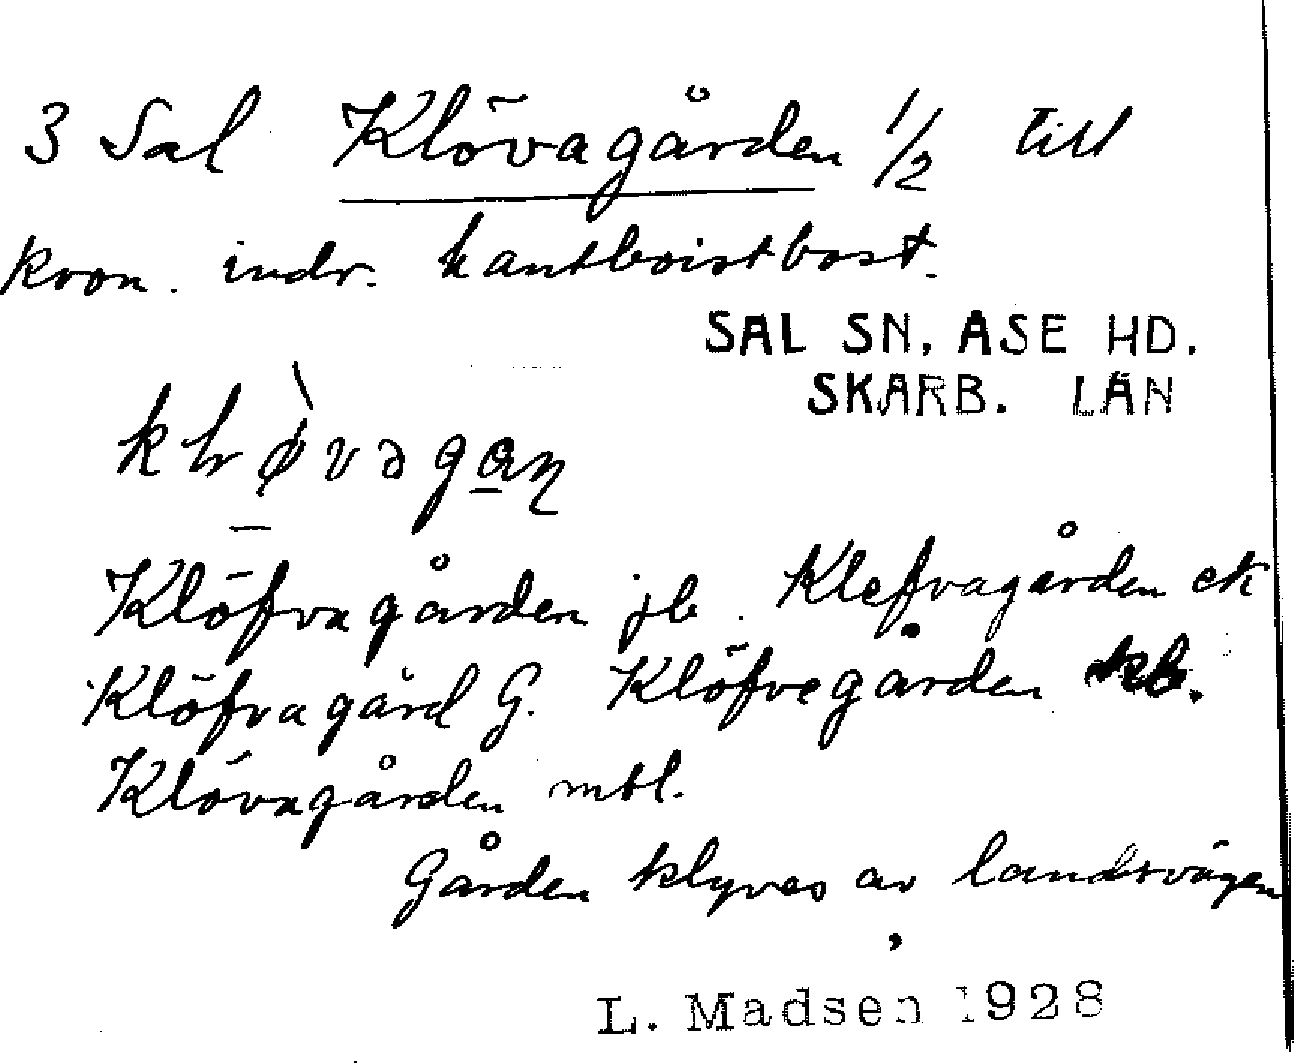 3 Sal Klövagården 1/2 till
kron. indr. hautboistbost.
SAL SN, ASE HD.
SKARB. LÄN
Klöfvagården jb. Klefvagården ek
Klöfvagård G. Klöfvegården kb.
Klövagården mtl.
Gården klyves av landsvägen
L. Madsen 1928